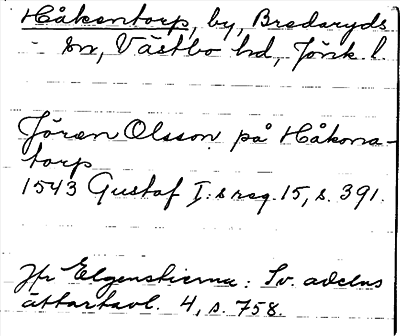 Håkentorp, by, Bredaryds
sn, Västbo hd, Jönk. l.
Jören Olsson på Håkona-
torp
1543 Gustaf I:s rsg. 15, s. 391.
Jfr Elgenstierna: Sv. adelns
ättartavl. 4, s. 758.